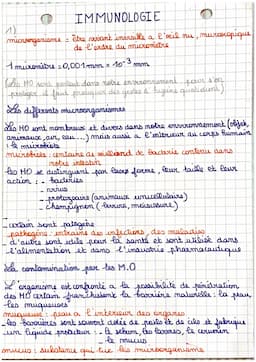 IMMUNOLOGIE
1)
microorganisme = être vivant invisible à l'oeil nu, microscopique
de l'ordre du micromètre
1 micromètre = 0,001 mm = 10^-3 mm
(les MO sont partout dans notre environnement pour s'en
protéger il faut pratiquer des gestes d'hygiène quotidien)
Les différents microorganismes
Les MO sont nombreux et divers dans notre environnement (objet,
animaux, air, eau...) mais aussi à l'intérieur du corps humain
: le microbiote
microbiote : centaine de milliard de bactérie contenu dans
notre intestin
Les MO se distinguent par leurs forme, leur taille et leur
action : - bactéries
- virus
- protozoaire (animaux unicellulaire)
- champignon (levure, moisissure)
- certain sont pathogène
pathogène : entraîne des infections, des maladies
- d'autre sont utile pour la santé et sont utilisé dans
l'alimentation et dans l'industrie pharmaceutique
La contamination par les M.O
L'organisme est confronté à la possibilité de pénétration
des MO certain franchissent la barrière naturelle : la peau,
les muqueuses
muqueuse : peau à l'intérieur des organes
les barrières sont souvent dotés de poils et de cils et fabrique
un liquide protecteur : - le sébum, les larmes, le cérumen
- le mucus
mucus : substance qui tue les microorganismes